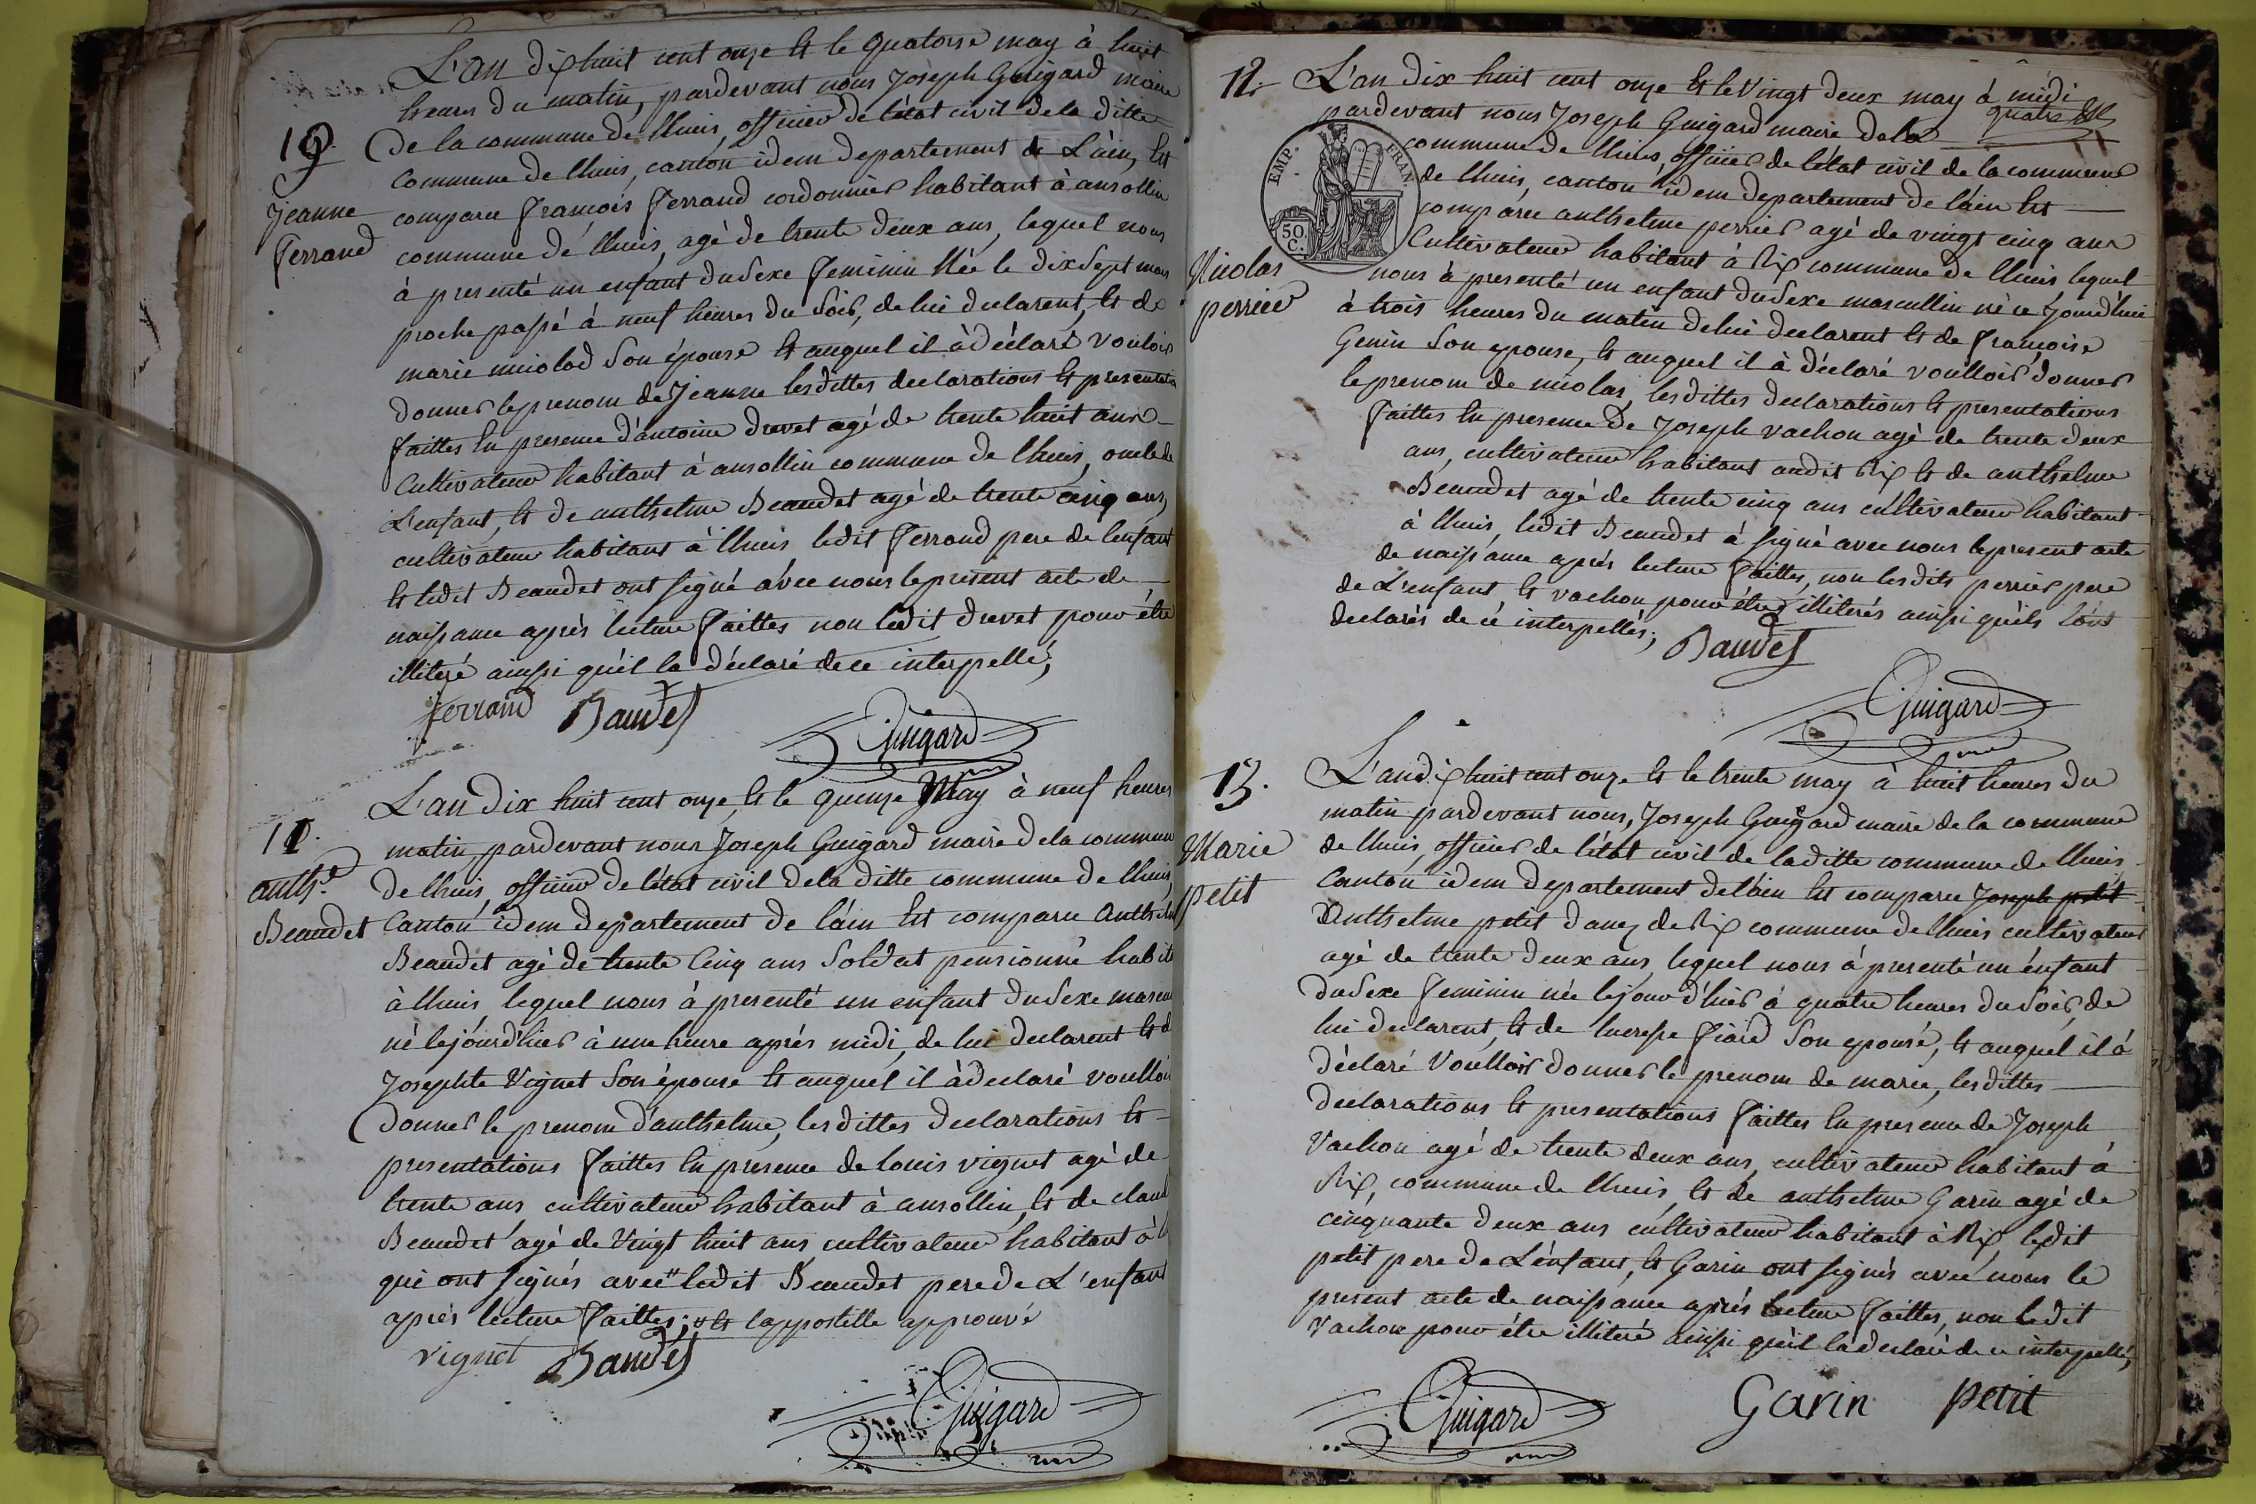 L'an dix huit cent onze Et le quatorze may à huit
heures du matin, pardevant nous Joseph Guigard maire
de la commune de lhuis, officier de l'état civil de la ditte
commune de lhuis, canton idem departement de L'ain, Est
comparu françois ferrand cordonnier habitant à ansollin
commune de lhuis, agé de trente deux ans, lequel nous
à presenté un enfant du Sexe feminin Née le dix Sept mars
proche passé à neuf heures du Soir, de lui declarent, Et de
marie micolod Son épouse Et auquel il à déclaré vouloir
donner le prenom de Jeanne lesdittes declarations Et presentation
faittes En presence d'antoine drevet agé de trente huit ans
Cultivateur habitant à ansollin commune de lhuis, oncle de
L'enfant, Et de anthelme Beaudet agé de trente cinq ans,
cultivateur habitant à lhuis ledit ferrand pere de l'enfant
Et ledit Beaudet ont signé avec nous le present acte de
naissance après lecture faittes non ledit drevet pour être
illiteré ainsi qu'il la déclaré de ce interpellé,
10.
Jeanne
ferrand
ferrand Baudet
Guigard
L'an dix huit cent onze, Et le quinze May à neuf heures
matin, pardevant nous Joseph Guigard maire dela commune
de lhuis, officier de l'état civil dela ditte commune de lhuis,
Canton idem departement de l'ain Est comparu Anthelme
Beaudet agé de trente Cinq ans Soldat pensionné habit
à lhuis, lequel nous à presenté un enfant du Sexe mascu
né le jourd'hier à une heure après midi, de lui declarent Et d
Josephte Vignet Son épouse Et auquel il à declaré voulloir
donner le prenom d'anthelme, lesdittes declarations Et
presentations faittes En presence de louis vignet agé de
trente ans cultivateur habitant à ansollin, Et de claud
Beaudet agé de Vingt huit ans cultivateur habitant à l
qui ont signés avec " ledit Beaudet pere de L'enfant
après lecture faittes; l'appostille approuvé
11.
anth.e
Beaudet
vignet Baudet
Guigard
12.
L'an dix huit cent onze Et le Vingt deux may à midi
quatre
pardevant nous Joseph Guigard maire dela
commune de lhuis, officier de l'état civil de la commune
de lhuis, canton idem departement de l'ain Est
comparu anthelme perrier agé de vingt cinq ans
Cultivateur habitant à Rix commune de lhuis, lequel
nous à presenté un enfant du Sexe mascullin né ce jourd'hui
à trois heures du matin de lui declarent Et de françoise
Genin Son epouse, Et auquel il à déclaré voulloir donner
le prenom de nicolas, lesdittes declarations Et presentations
faittes En presence de Joseph vachon agé de trente deux
ans, cultivateur habitant audit Rix Et de anthelme
Beaudet agé de trente cinq ans cultivateur habitant
à lhuis, ledit Beaudet à signé avec nous le present acte
de naissance après lecture faittes, non lesdits perrier pere
de L'enfant, Et vachon pour être illiterés ainsi qu'ils l'ont
declarés de ce interpellés;
EMP. FRAN.
50.
C.
Nicolas
perrier
Baudet
Guigard
13.
L'an dix huit cent onze Et le trente may à huit heures du
matin pardevant nous, Joseph Guigard maire de la commune
de lhuis, officier de l'état civil de laditte commune de lhuis
Canton idem departement de l'ain Est comparu Joseph petit
Anthelme petit danez de Rix commune de lhuis cultivateur
agé de trente deux ans, lequel nous à presenté un enfant
du Sexe feminin née le jour d'hier à quatre heures du Soir, de
lui declarent, Et de lucresse fiard Son epousé, Et auquel il à
déclaré Voulloir donner le prenom de marie, lesdittes
declarations Et presentations faittes En presence de Joseph
Vachon agé de trente deux ans, cultivateur habitant à
Rix, commune de lhuis, Et de anthelme Garin agé de
cinquante deux ans cultivateur habitant à Rix ledit
petit pere de L'enfant, Et Garin ont signés avec nous le
present acte de naissance après lecture faittes, non ledit
Vachon pour être illiteré ainsi qu'il la declaré de ce interpellé,
Marie
petit
Guigard Garin petit